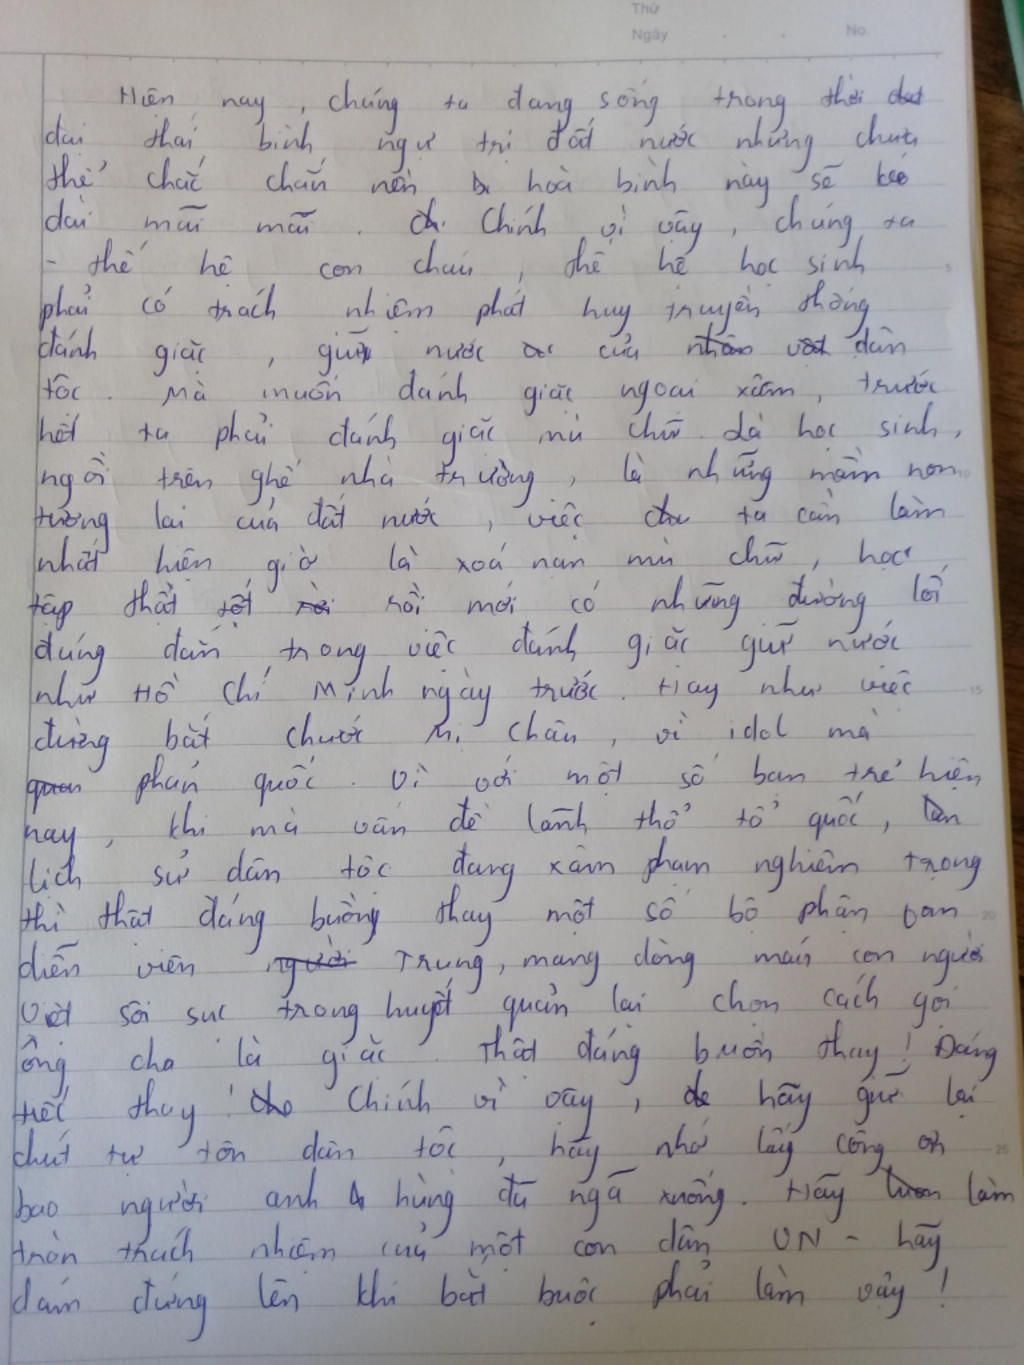 Thứ
Ngày . . No.
Hiện nay, chúng ta đang sống trong thời
đại thái bình ngự trị đất nước nhưng chưa
thể chắc chắn nền hoà bình này sẽ kéo
dài mãi mãi. Chính vì vậy, chúng ta
- thế hệ con cháu, thế hệ học sinh
phải có trách nhiệm phát huy truyền thống
đánh giặc, giữ nước của dân
tộc. Mà muốn đánh giặc ngoại xâm, trước
hết ta phải đánh giặc mù chữ. Là học sinh,
ngồi trên ghế nhà trường, là những mầm non
tương lai của đất nước, việc ta cần làm
nhất hiện giờ là xoá nạn mù chữ, học
tập thật tốt rồi mới có những đường lối
đúng đắn trong việc đánh giặc giữ nước
như Hồ Chí Minh ngày trước. Hay như việc
đừng bắt chước Mị Châu, vì idol mà
phản quốc. Vì với một số bạn trẻ hiện
nay, khi mà vấn đề lãnh thổ tổ quốc,
lịch sử dân tộc đang xâm phạm nghiêm trọng
thì thật đáng buồng thay một số bộ phận fan
diễn viên Trung, mang dòng máu con người
Việt sôi sục trong huyết quản lại chọn cách gọi
ông cha là giặc. Thật đáng buồn thay! Đáng
tiếc thay! Chính vì vậy, hãy giữ lại
chút tự tôn dân tộc, hãy nhớ lấy công ơn
bao người anh hùng đã ngã xuống. Hãy làm
tròn trách nhiệm của một con dân VN - hãy
dám đứng lên khi bắt buộc phải làm vậy!